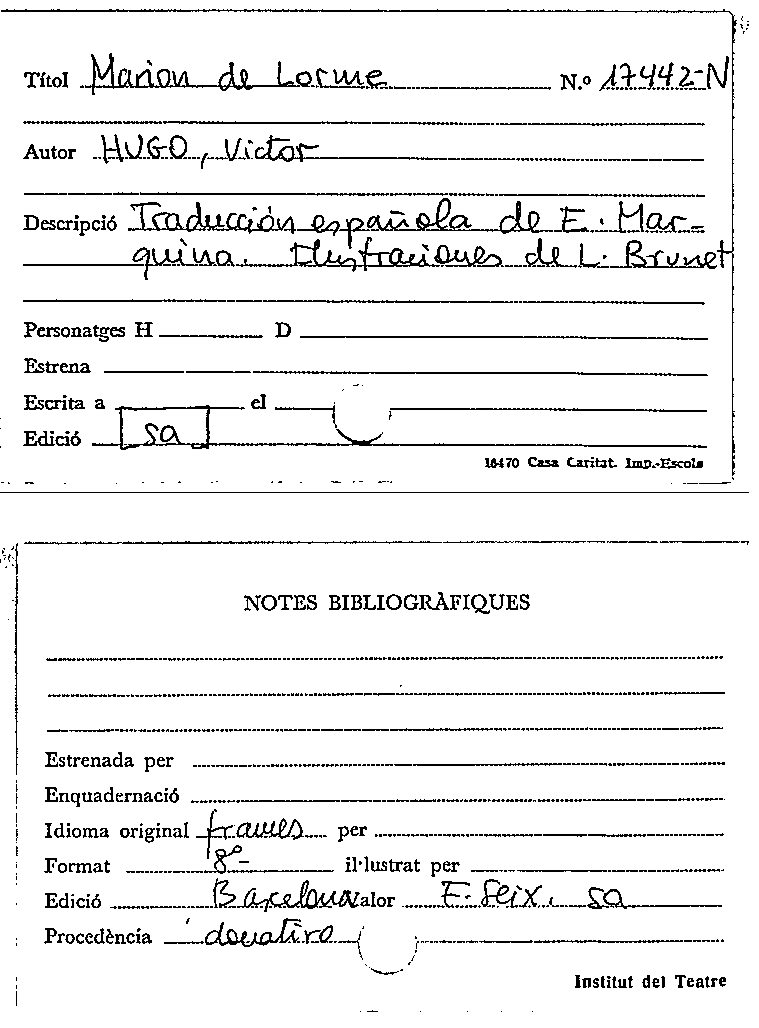 Títol Marion de Lorme N.º 17442-N
Autor HUGO, Victor
Descripció Traducción española de E. Mar-
quina. Ilustraciones de L. Brunet
Personatges H D
Estrena
Escrita a el
Edició sa
16470 Casa Caritat. Imp.-Escola
NOTES BIBLIOGRÀFIQUES
Estrenada per
Enquadernació
Idioma original frances per
Format 8º il·lustrat per
Edició Barcelona Valor F. Seix. sa
Procedència donativo
Institut del Teatre